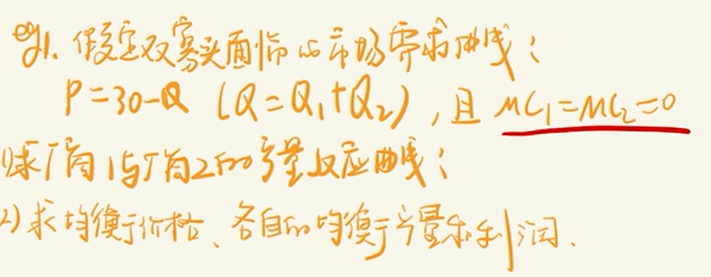 eg1. 假定双寡头面临的市场需求曲线:
P=30-Q (Q=Q₁+Q₂), 且 MC₁=MC₂=0
1)求厂商1与厂商2的产量反应曲线;
2)求均衡价格、各自的均衡产量和利润.